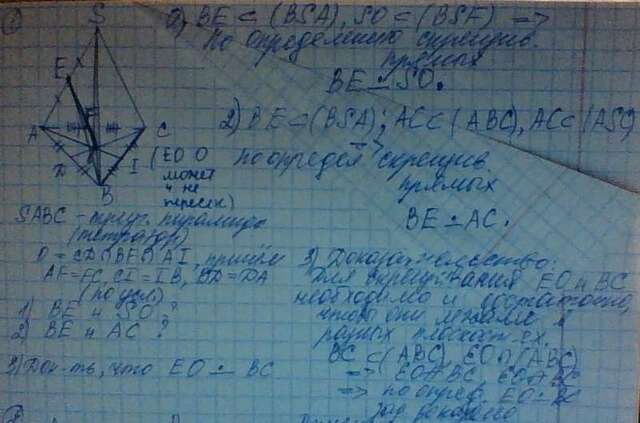 S
E
A
C
B
I
D
SABC - треуг. пирамида
(тетраэдр)
O = CD ∩ BF ∩ AI, причём
AF = FC, CI = IB, BD = DA
(по усл)
1) BE и SO ?
2) BE и AC ?
3) Док-ть, что EO ∸ BC
BE ⊂ (BSA), SO ⊂ (BSF) =>
по определению скрещив.
прямых
BE ∸ SO.
2) BE ⊂ (BSA); AC ⊂ (ABC), AC ⊂ (ASC)
=> по определ скрещив.
прямых
BE ∸ AC.
(EO O
может
и не
пересек)
3) Доказательство:
Для скрещивания EO и BC
необходимо и достаточно,
чтобы они лежали в
разных плоскост-ях.
BC ⊂ (ABC), EO ∩ (ABC)
=> по опред. EO ∸ BC